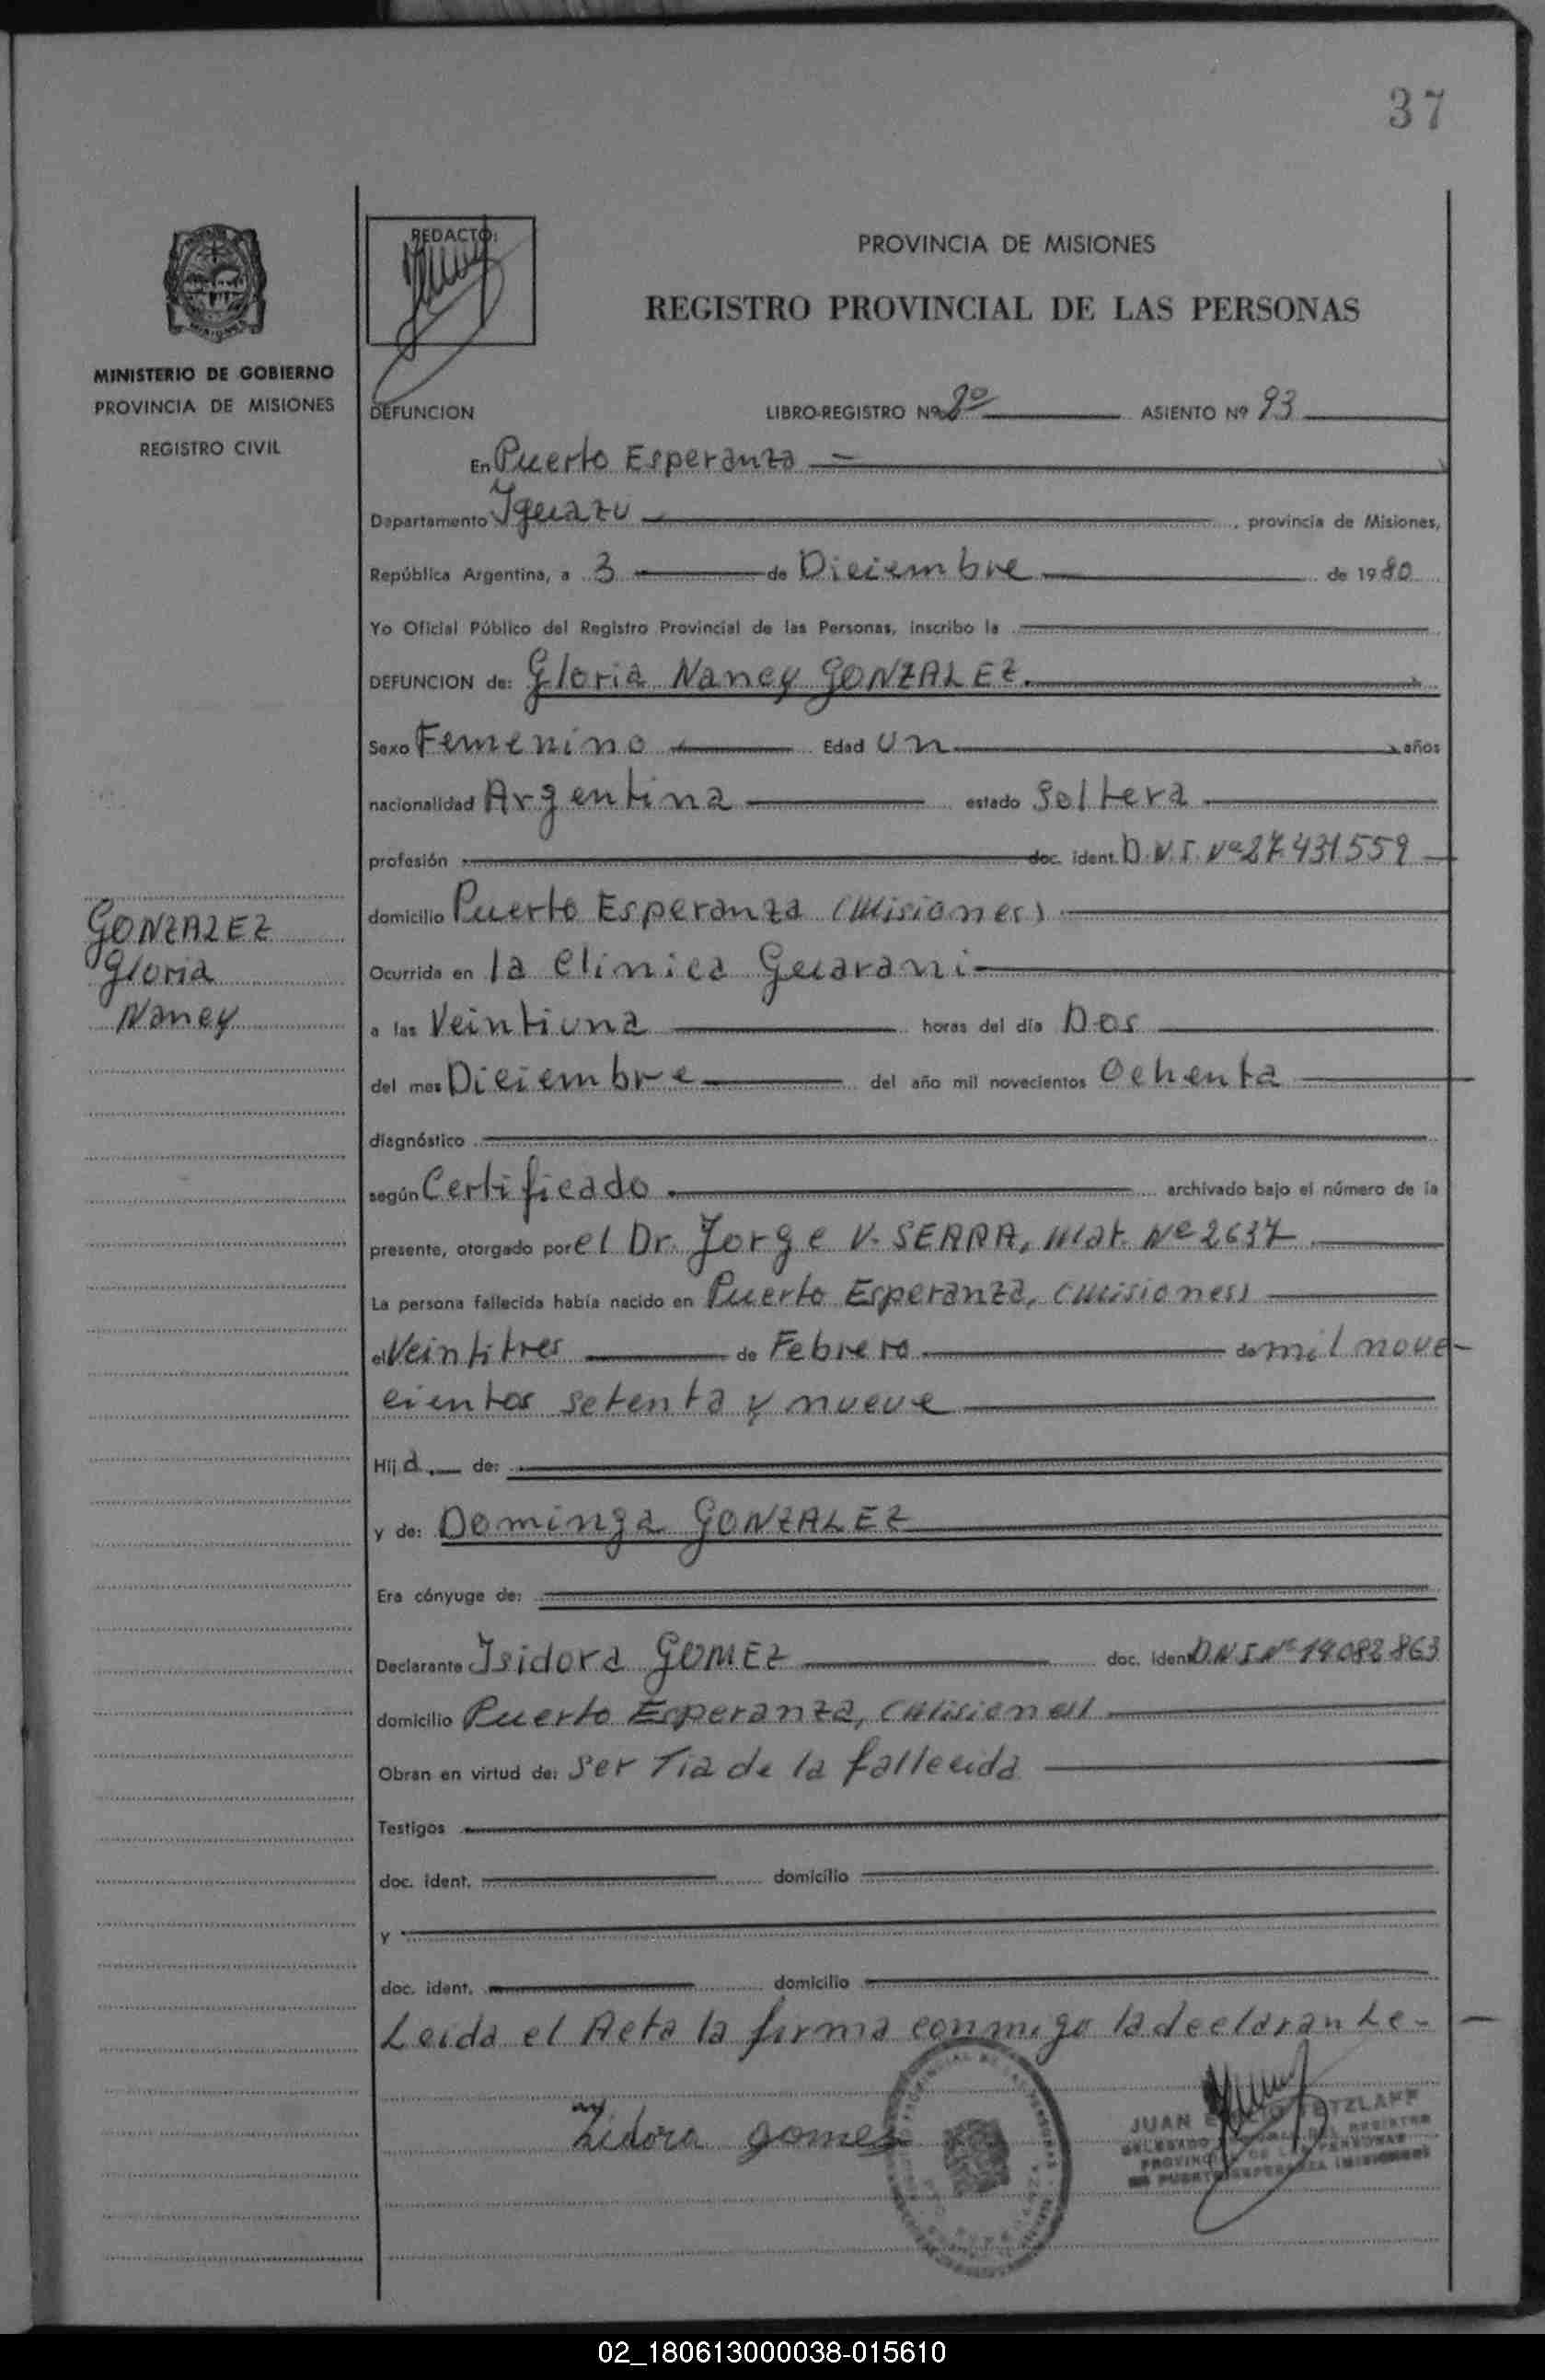 37
MINISTERIO DE GOBIERNO
PROVINCIA DE MISIONES
REGISTRO CIVIL
REDACTO:
PROVINCIA DE MISIONES
REGISTRO PROVINCIAL DE LAS PERSONAS
DEFUNCION LIBRO-REGISTRO Nº ASIENTO Nº 93
En Puerto Esperanza
Departamento Iguazu, provincia de Misiones,
República Argentina, a 3 de Diciembre de 1980
Yo Oficial Público del Registro Provincial de las Personas, inscribo la
DEFUNCION de: Gloria Nancy GONZALEZ.
Sexo Femenino Edad Un años
nacionalidad Argentina estado Soltera
profesión doc. ident. D.N.I. Nº 27.431559
domicilio Puerto Esperanza (Misiones)
Ocurrida en la Clinica Guarani
a las Veintiuna horas del día Dos
del mes Diciembre del año mil novecientos Ochenta
diagnóstico
según Certificado archivado bajo el número de la
presente, otorgado por el Dr. Jorge V. SERRA, Mat. Nº 2637
La persona fallecida había nacido en Puerto Esperanza, (Misiones)
el Veintitres de Febrero de mil nove-
cientos setenta y nueve
Hij a de:
y de: Dominga GONZALEZ
Era cónyuge de:
Declarante Isidora GOMEZ doc. ident D.N.I. Nº 14.082.863
domicilio Puerto Esperanza, (Misiones)
Obran en virtud de: Ser Tia de la fallecida
Testigos
doc. ident. domicilio
y
doc. ident. domicilio
Leida el Acta la firma conmigo la declarante.
GONZALEZ
Gloria
Nancy
gomez
JUAN
02_180613000038-015610